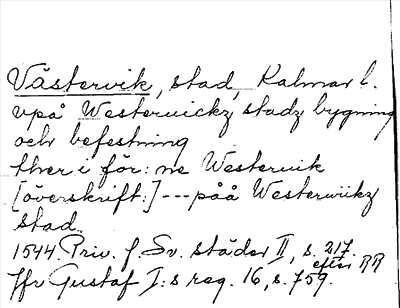 Västervik, stad, Kalmar l.
vpå Westervickz stadz bygning
och befestning
ther i för: ne Westervik
[överskrift:] --- påå Westerwiikz
stad
1544 Priv. f Sv. städer II, s. 217
efter RR
Jfr Gustaf I:s reg. 16, s. 759.